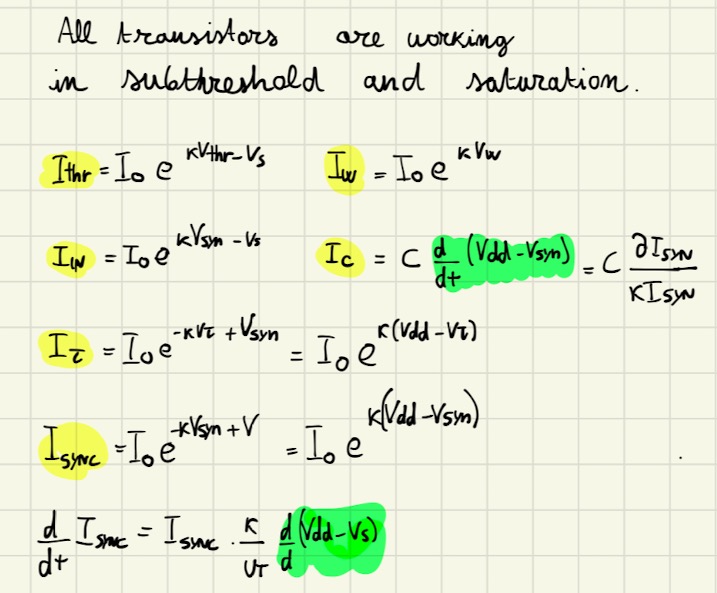 All transistors are working
in subthreshold and saturation.
I_thr = I_o e^{κV_thr - V_s} I_w = I_o e^{κV_w}
I_w = I_o e^{κV_syn - V_s} I_c = C d/dt (Vdd - V_syn) = C ∂I_SYN / κI_SYN
I_τ = I_o e^{-κV_τ + V_syn} = I_o e^{κ(Vdd - V_τ)}
I_sync = I_o e^{-κV_syn + V} = I_o e^{κ(Vdd - V_syn)}
d/dt I_sync = I_sync · κ/U_T d/d (Vdd - V_s)